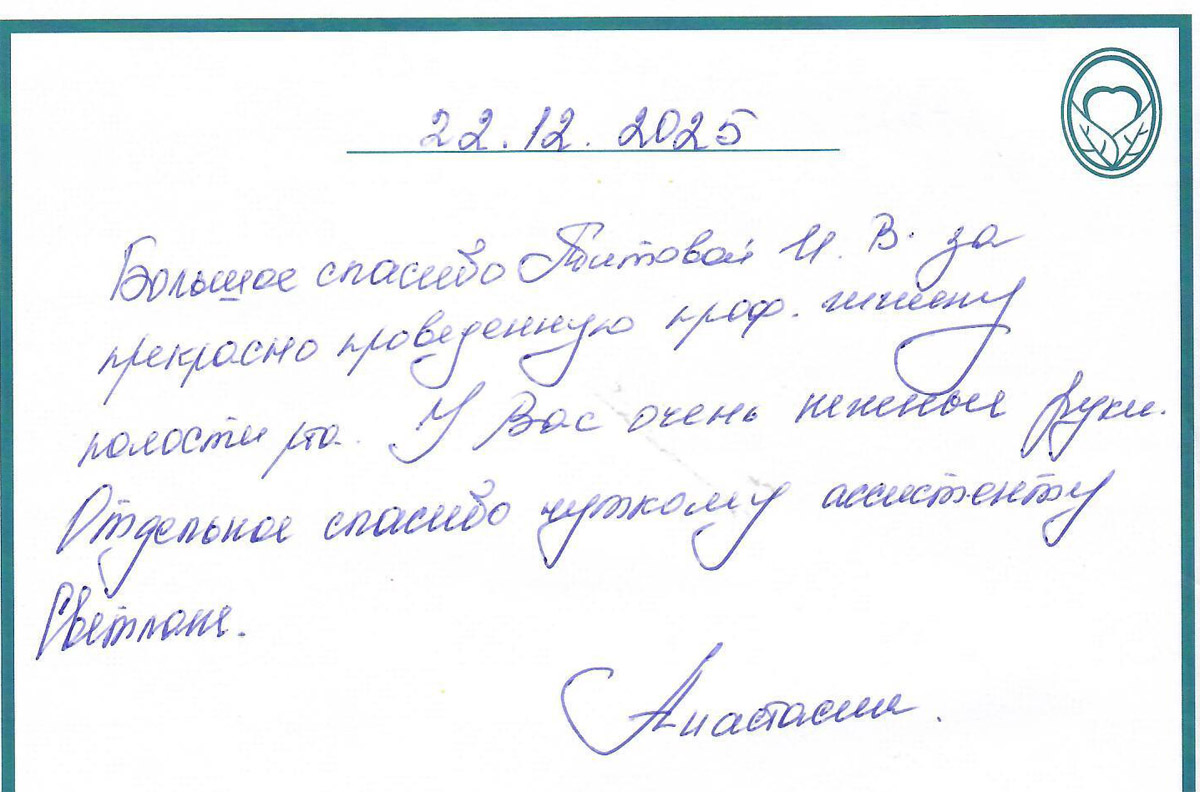 22.12.2025
Большое спасибо Титовой И. В. за
прекрасно проведенную проф. гигиену
полости рта. У Вас очень нежные руки.
Отдельное спасибо чуткому ассистенту
Светлане.
Анастасия.